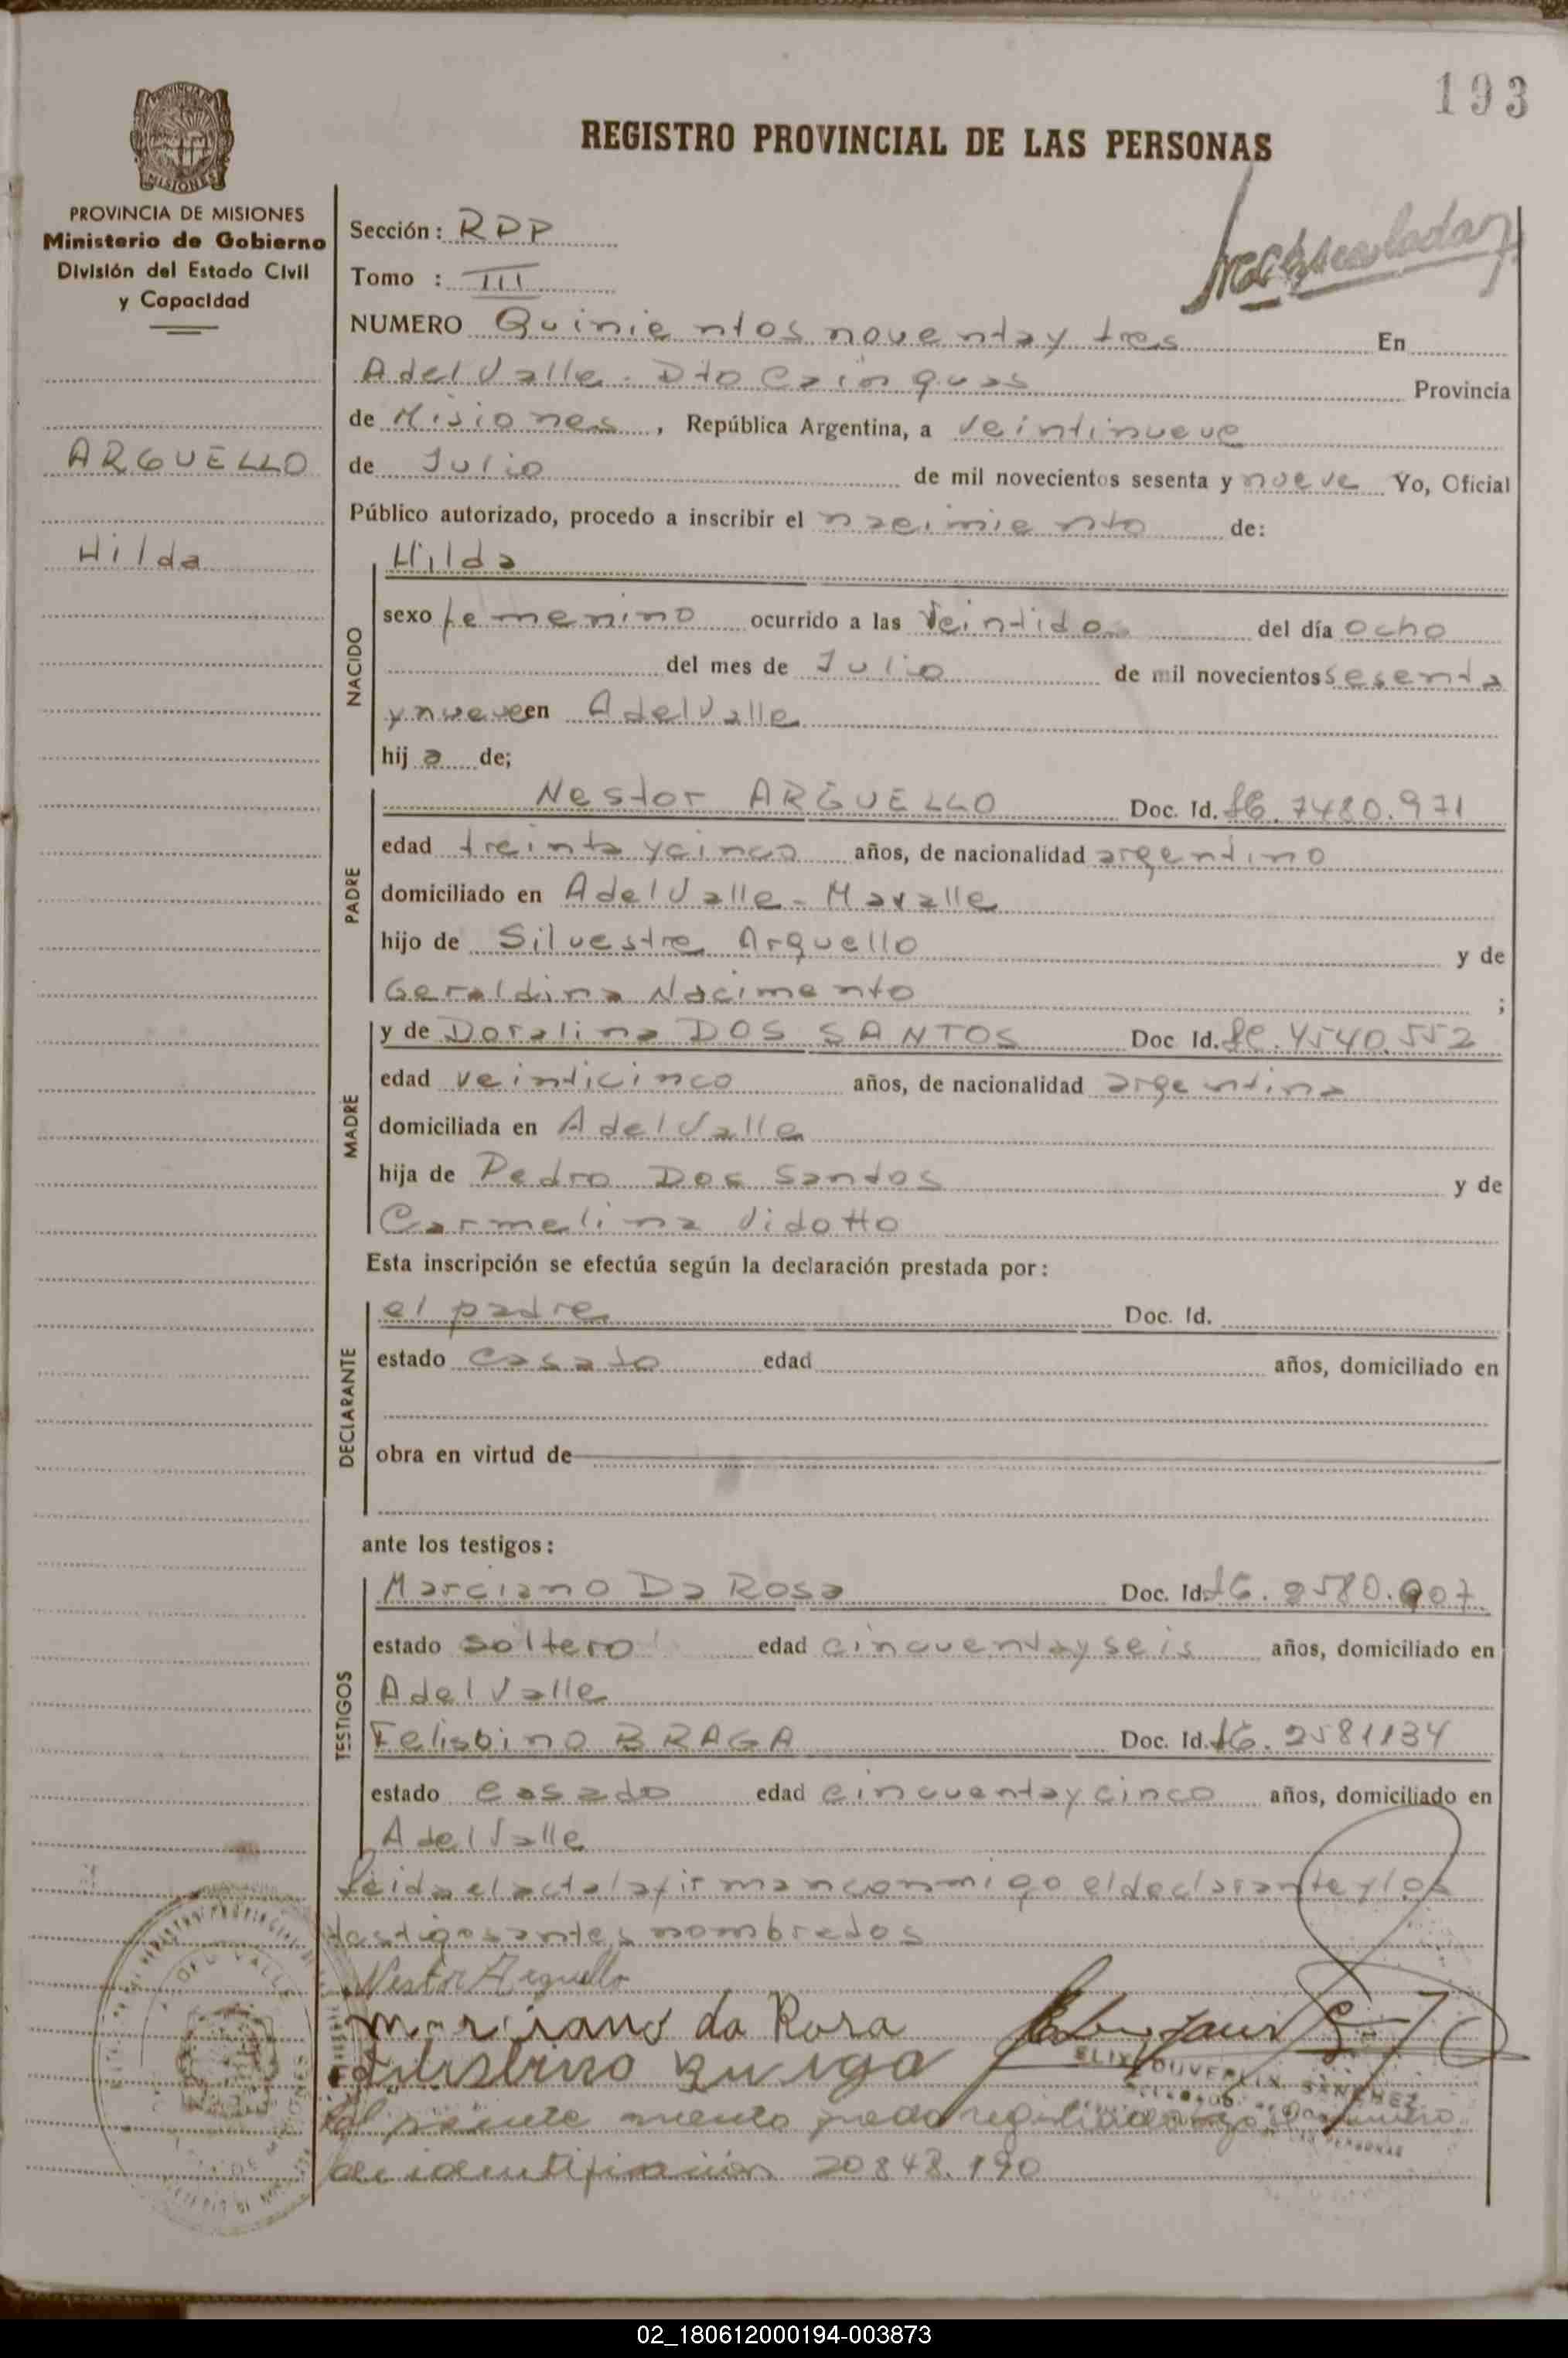 193
REGISTRO PROVINCIAL DE LAS PERSONAS
MISIONES
PROVINCIA DE MISIONES
Ministerio de Gobierno
División del Estado Civil
y Capacidad
ARGUELLO
Hilda
Sección: RDP
Tomo : III
NUMERO Quinientos noventa y tres En
A del Valle - Dto Cainguas Provincia
de Misiones, República Argentina, a veintinueve
de Julio de mil novecientos sesenta y nueve Yo, Oficial
Público autorizado, procedo a inscribir el nacimiento de:
NACIDO
Hilda
sexo femenino ocurrido a las veintidos del día ocho
del mes de Julio de mil novecientos sesenta
y nueve en A del Valle
hija de;
PADRE
Nestor ARGUELLO Doc. Id. 7480.971
edad treinta y cinco años, de nacionalidad argentino
domiciliado en A del Valle - Mavalle
hijo de Silvestre Arguello y de
Geraldina Nacimento ;
MADRE
y de Doralina DOS SANTOS Doc Id. 4540.552
edad veinticinco años, de nacionalidad argentina
domiciliada en A del Valle
hija de Pedro Dos Santos y de
Carmelina Vidotto
Esta inscripción se efectúa según la declaración prestada por:
DECLARANTE
el padre Doc. Id.
estado casado edad años, domiciliado en
obra en virtud de
ante los testigos:
TESTIGOS
Marciano Da Rosa Doc. Id. 2580.907
estado soltero edad cincuenta y seis años, domiciliado en
A del Valle
Felisbino BRAGA Doc. Id. 2581134
estado casado edad cincuenta y cinco años, domiciliado en
A del Valle
Leida el acta la firman conmigo el declarante y los
testigos antes nombrados
Nestor Arguello
marciano da Rosa
SANCHEZ
de identificación 20848.190
02_180612000194-003873